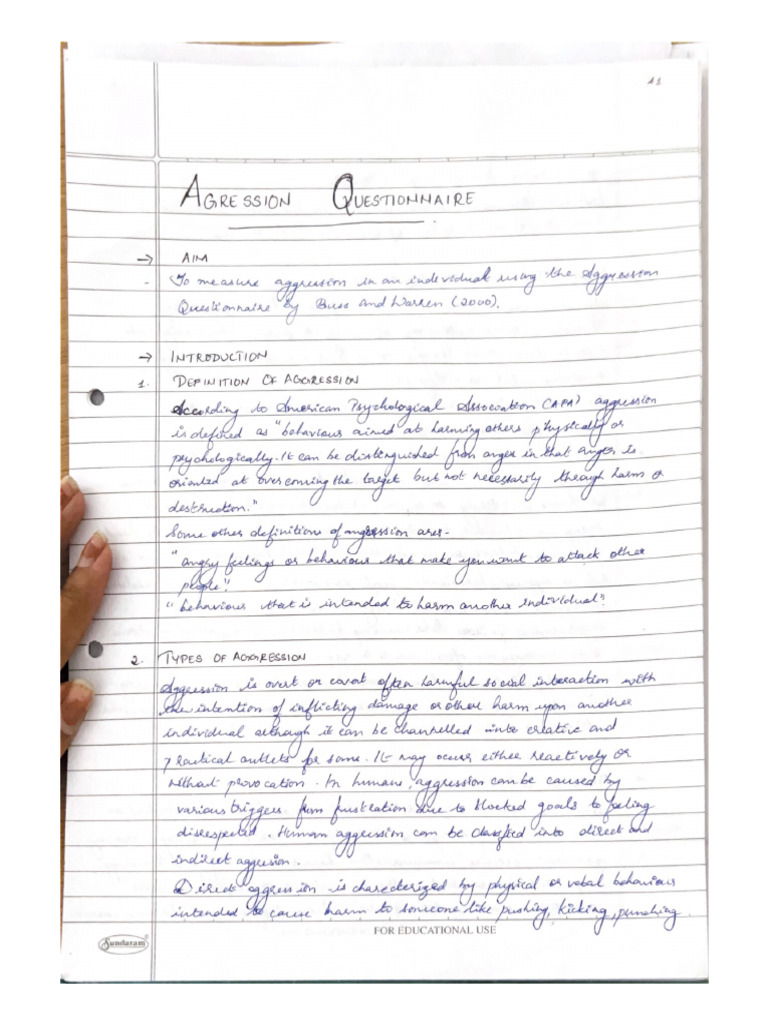 A1
AGRESSION QUESTIONNAIRE
→ AIM
- To measure aggression in an individual using the Aggression
Questionnaire by Buss and Warren (2000).
→ INTRODUCTION
1. DEFINITION OF AGGRESSION
According to American Psychological Association (APA) aggression
is defined as "behaviour aimed at harming others physically or
psychologically. It can be distinguished from anger in that anger is
oriented at overcoming the target but not necessarily through harm or
destruction."
Some other definition of aggression are:-
"angry feelings or behaviour that make you want to attack other
people."
"behaviour that is intended to harm another individual".
2. TYPES OF AGGRESSION
Aggression is overt or covert often harmful social interaction with
the intention of inflicting damage or other harm upon another
individual although it can be channelled into creative and
practical outlets for some. It may occur either reactively or
without provocation. In humans, aggression can be caused by
various triggers from frustration due to blocked goals to feeling
disrespected. Human aggression can be classified into direct and
indirect aggresion.
Direct aggression is characterized by physical or vebal behaviour
intended to cause harm to someone like pushing, kicking, punching
FOR EDUCATIONAL USE
Sundaram